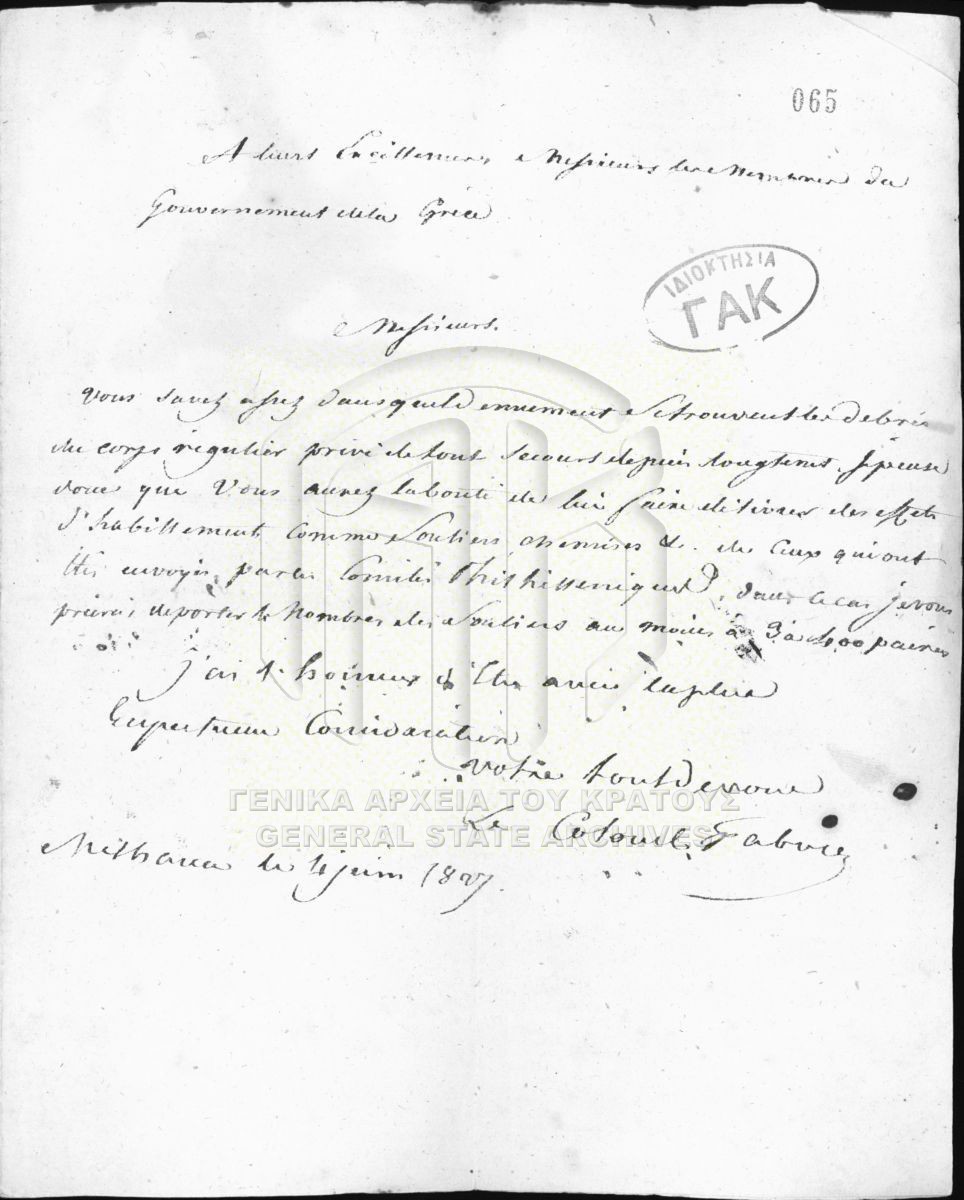 065
A leurs Excellences Messieurs les Membres du
Gouvernement de la Grèce
ΙΔΙΟΚΤΗΣΙΑ
ΓΑΚ
Messieurs.
Vous savez assez dans quel denuement se trouvent les debris
du corps régulier privé de tout secours depuis longtems. Je pense
donc que Vous aurez la bonté de lui faire délivrer des effets
d'habillement comme Souliers chemises &. de Ceux qui ont
été envoyés par les Comités Philhelleniques, dans ce cas je vous
prierai de porter le Nombre des Souliers au moins à 3 à 400 paires
j'ai l'honneur d'Etre avec la plus
Respectueuse Considération
Votre tout devoué
Le Colonel Fabvier
ΓΕΝΙΚΑ ΑΡΧΕΙΑ ΤΟΥ ΚΡΑΤΟΥΣ
GENERAL STATE ARCHIVES
Methana le 4 juin 1827.